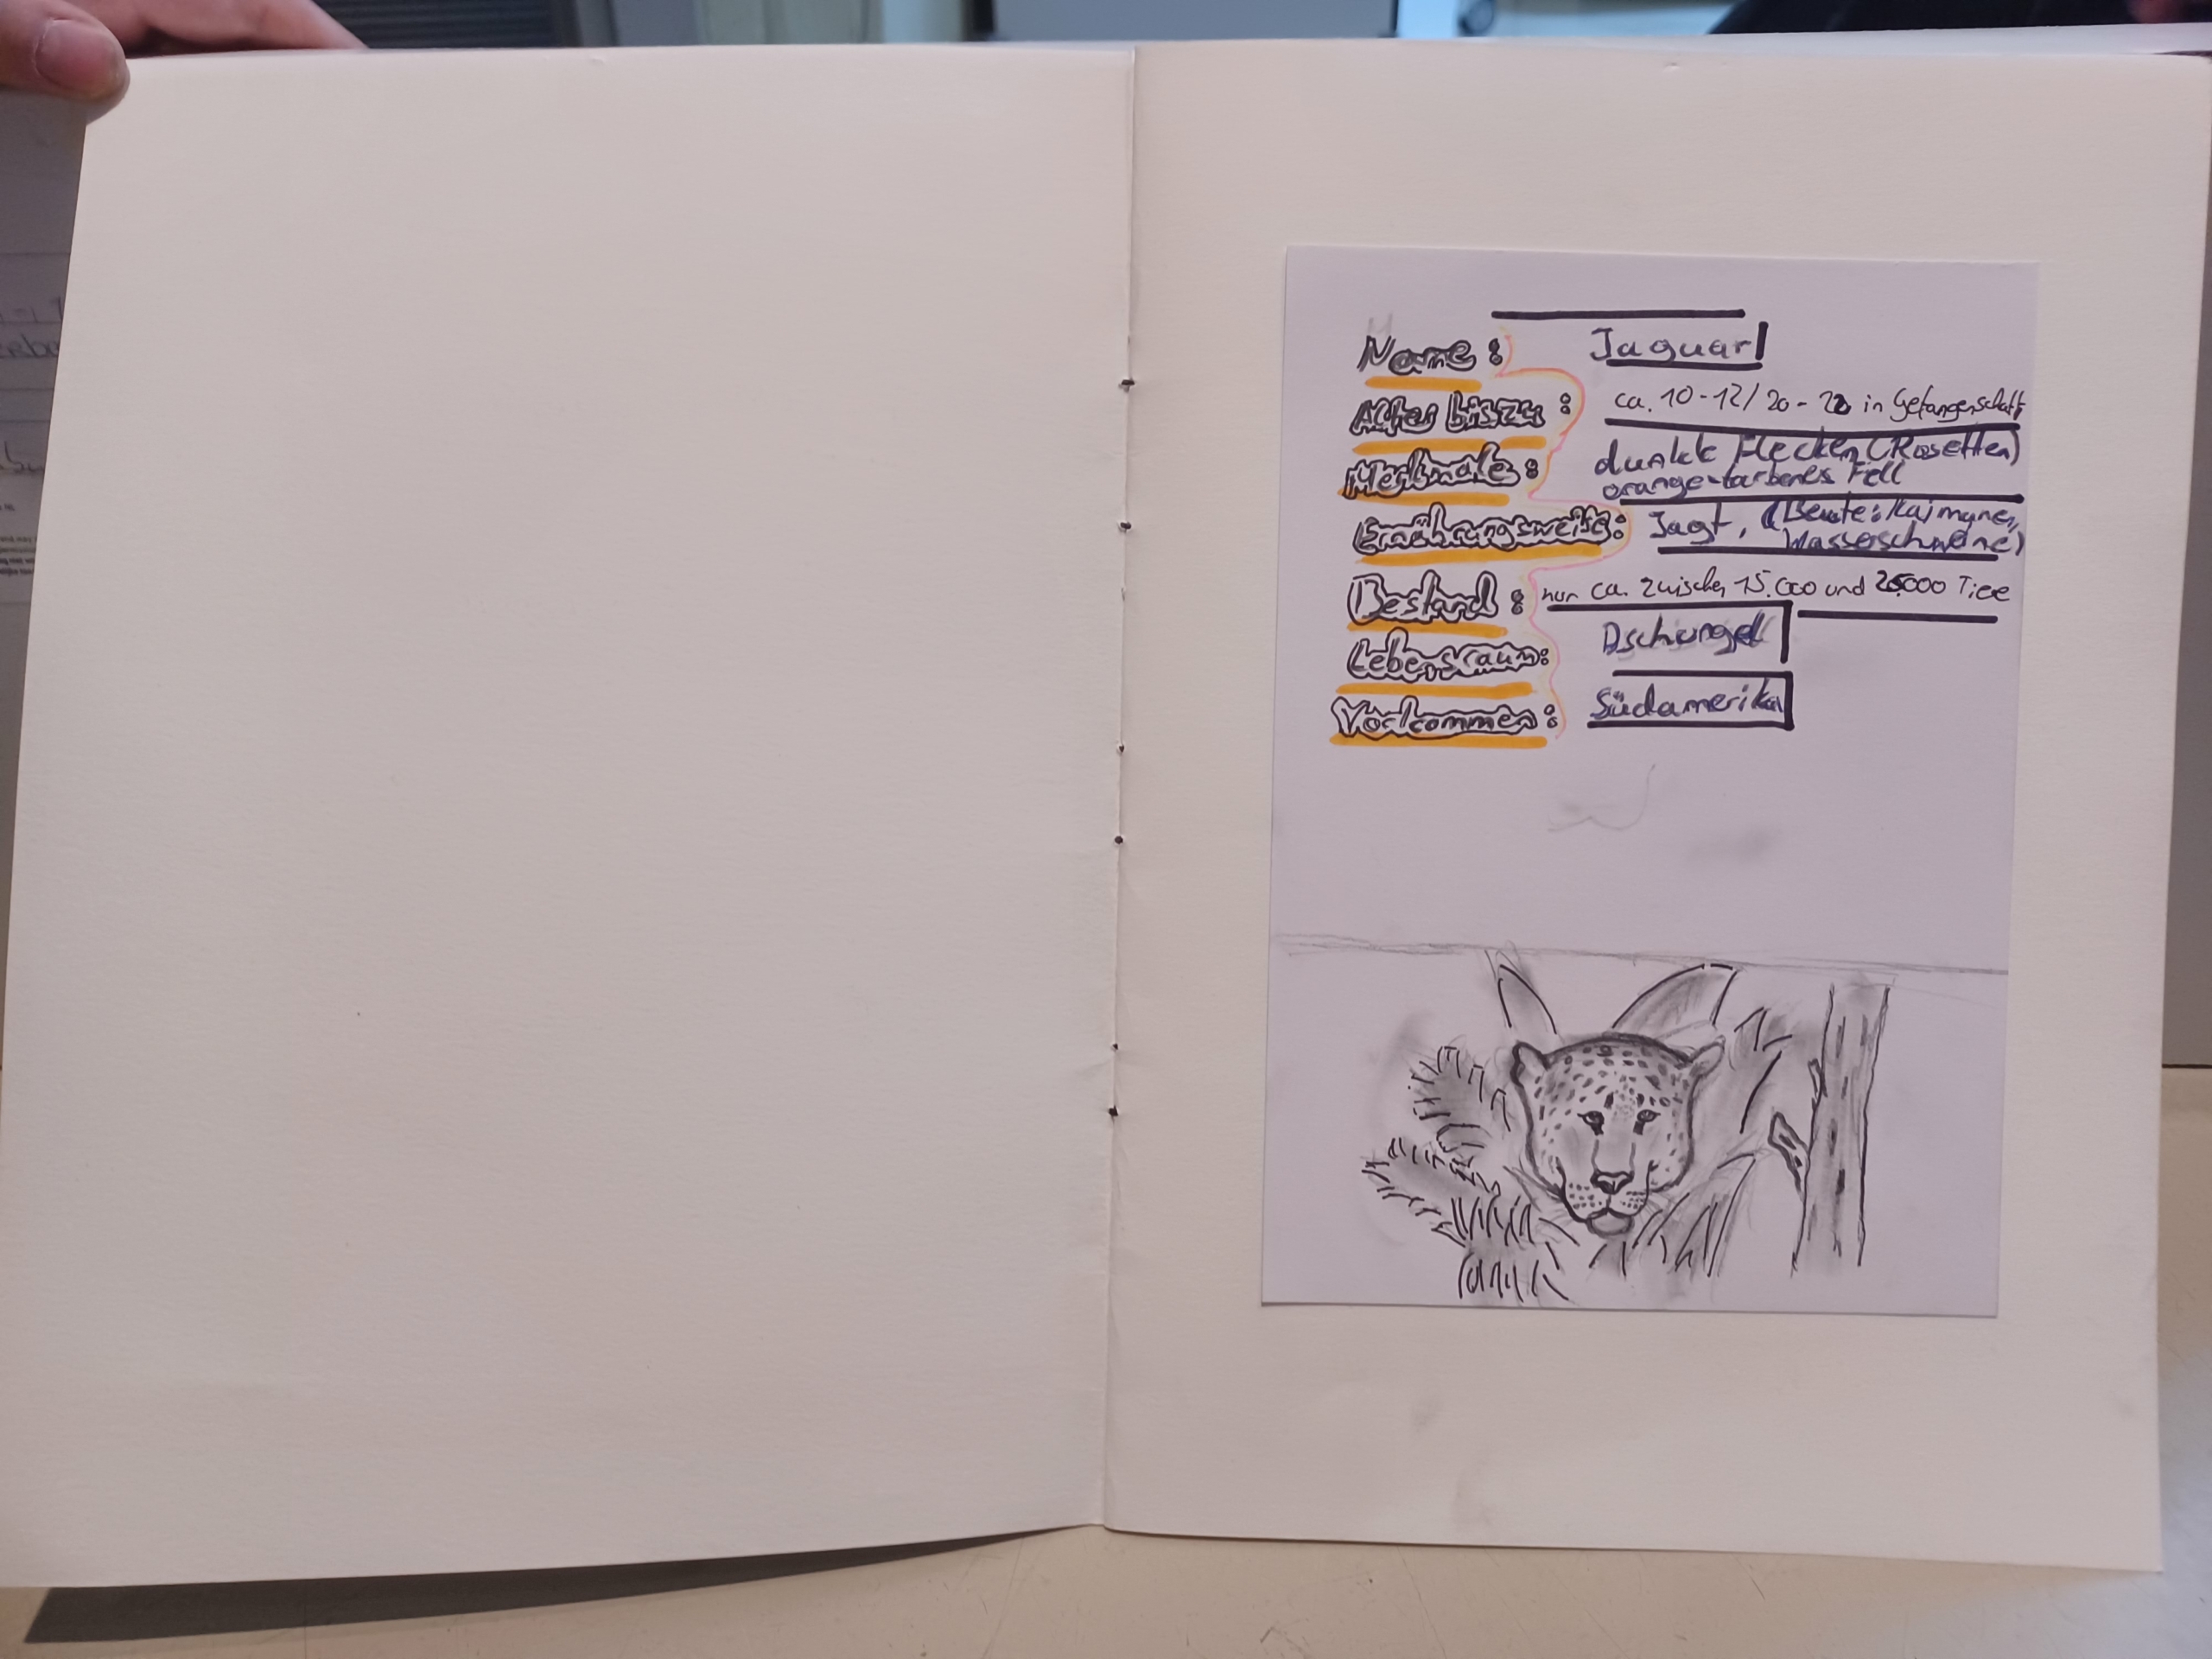 Name: Jaguar
Alter bis zu: ca. 10-12/20-22 in Gefangenschaft
Merkmale: dunkle Flecken (Rosetten)
orange-farbenes Fell
Ernährungsweise: Jagt, (Beute: Kaimane,
Wasserschweine)
Bestand: nur ca. zwischen 15.000 und 20000 Tiere
Lebensraum: Dschungel
Vorkommen: Südamerika